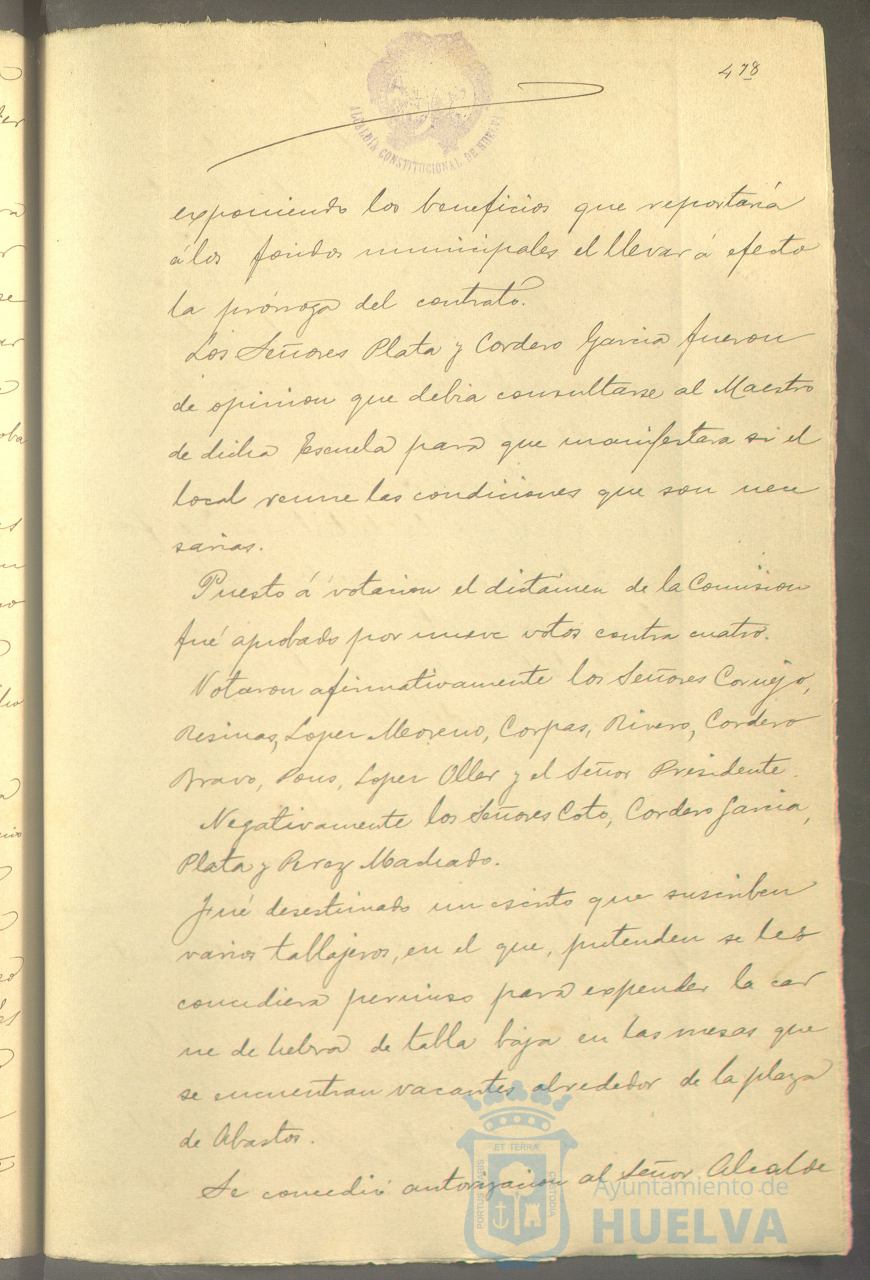 478
ALCALDÍA CONSTITUCIONAL DE HUELVA
exponiendo los beneficios que reportaria
á los fondos municipales el llevar á efecto
la prórroga del contrato.
Los Señores Plata y Cordero Garcia fueron
de opinion que debia consultarse al Maestro
de dicha Escuela para que manifestara si el
local reune las condiciones que son nece
sarias.
Puesto á votacion el dictámen de la Comision
fué aprobado por nueve votos contra cuatro.
Votaron afirmativamente los Señores Cornejo,
Resinas, Lopez Moreno, Corpas, Rivero, Cordero
Bravo, Pons, Lopez Oller y el Señor Presidente.
Negativamente los Señores Coto, Cordero Garcia,
Plata y Perez Machado.
Fué desestimado un escrito que suscriben
varios tallajeros, en el que, pretenden se les
concediera permiso para expender la car
ne de hebra de tabla baja en las mesas que
se encuentran vacantes alrededor de la plaza
de Abastos.
Se concedió autorizacion al Señor Alcalde
PORTUS MARIS
ET TERRÆ
CUSTODIA
Ayuntamiento de
HUELVA